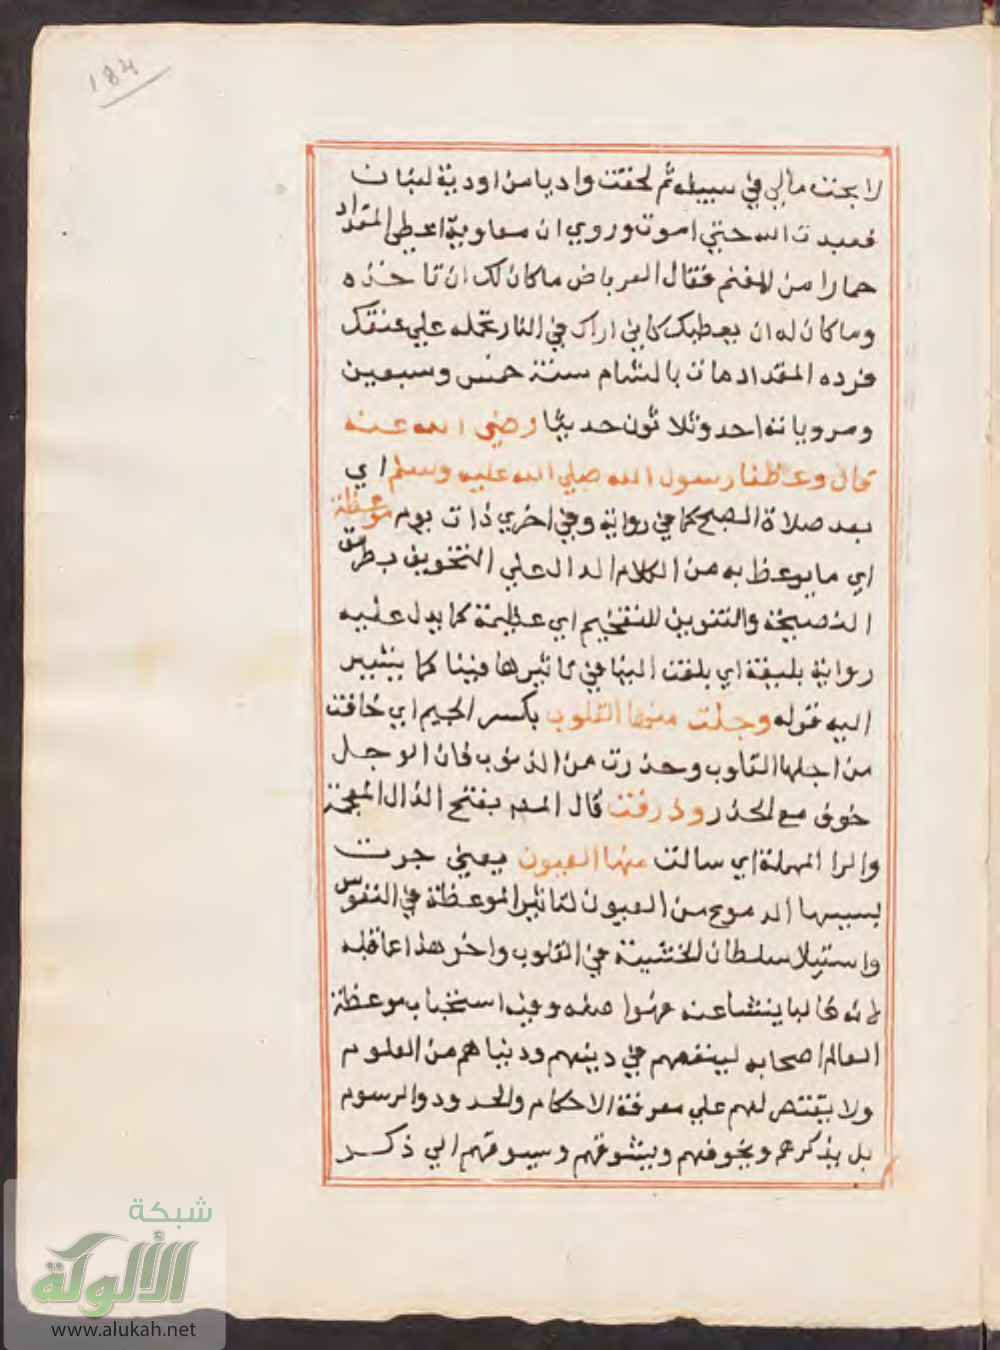 184
لابحت مالي في سبيله ثم لحقت واديا من اودية لبنان
فعبدت الله حتي اموت وروي ان معاوية اعطي المقداد
حمارا من المغنم فقال العرباض ما كان لك ان تاخذه
وما كان له ان يعطيك كاني اراك في النار تحمله علي عنقك
فرده المقداد مات بالشام سنة خمس وسبعين
ومروياته احد وثلاثون حديثا رضي الله عنه
قال وعظنا رسول الله صلي الله عليه وسلم اي
بعد صلاة الصبح كما في رواية وفي اخري ذات يوم موعظة
اي ما يوعظ به من الكلام الدال علي التخويف بطريق
النصيحة والتنوين للتفخيم اي عظيمة كما يدل عليه
رواية بليغة اي بلغت الينا في تاثيرها فينا كما يشير
اليه قوله وجلت منها القلوب بكسر الجيم اي خافت
من اجلها القلوب وحذرت من الذنوب فان الوجل
خوف مع الحذر وذرفت قال المص بفتح الذال المعجمة
والرا المهملة اي سالت منها العيون يعني جرت
بسببها الدموع من العيون لتاثير الموعظة في النفوس
واستيلا سلطان الخشية في القلوب واخر هذا عما قبله
لانه غالبا ينشا عنه فهو وفيه استحباب موعظة
العالم اصحابه لينفعهم في دينهم ودنياهم من العلوم
ولا يقتصر لهم علي معرفة الاحكام والحدود والرسوم
بل يذكرهم ويخوفهم ويشوقهم وسيوقهم الي ذكر
شبكة
الألوكة
www.alukah.net